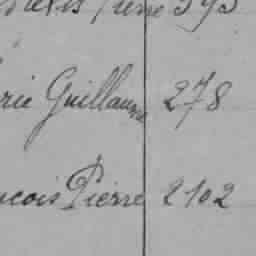 Pierre 393
rie Guillaume 278
ncois Pierre 2102